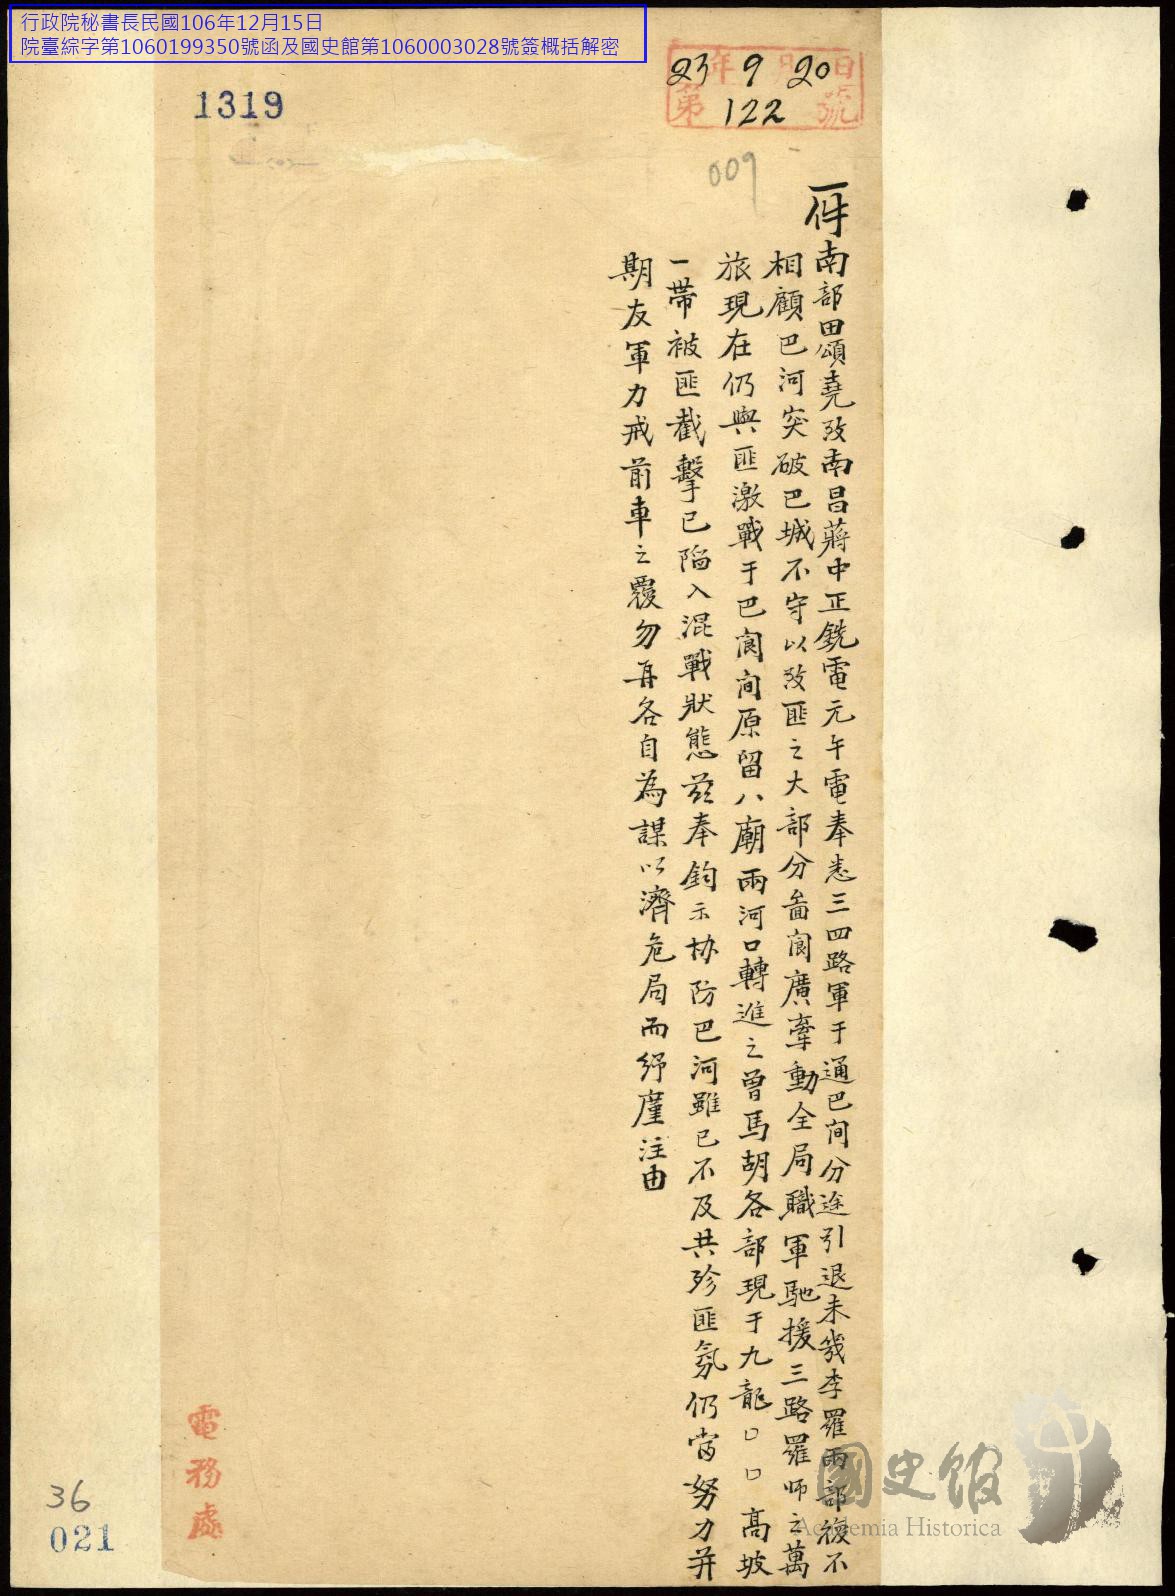 行政院秘書長民國106年12月15日
院臺綜字第1060199350號函及國史館第1060003028號簽概括解密
23年9月20日
第122號
1319
009
一件南部田頌堯致南昌蔣中正銑電元午電奉悉三四路軍于通巴間分途引退未幾李羅兩部復不
相顧巴河突破巴城不守以致匪之大部分畵閬廣牽動全局職軍馳援三路羅师之萬
旅現在仍與匪激戰于巴閬间原留八廟兩河口轉進之曾馬胡各部現于九龍口口高坡
一帶被匪截擊已陷入混戰狀態茲奉鈞示协防巴河雖已不及共殄匪氛仍當努力并
期友軍力戒前車之覆勿再各自為謀以濟危局而紓廑注由
電務處
36
021
國史館
Academia Historica